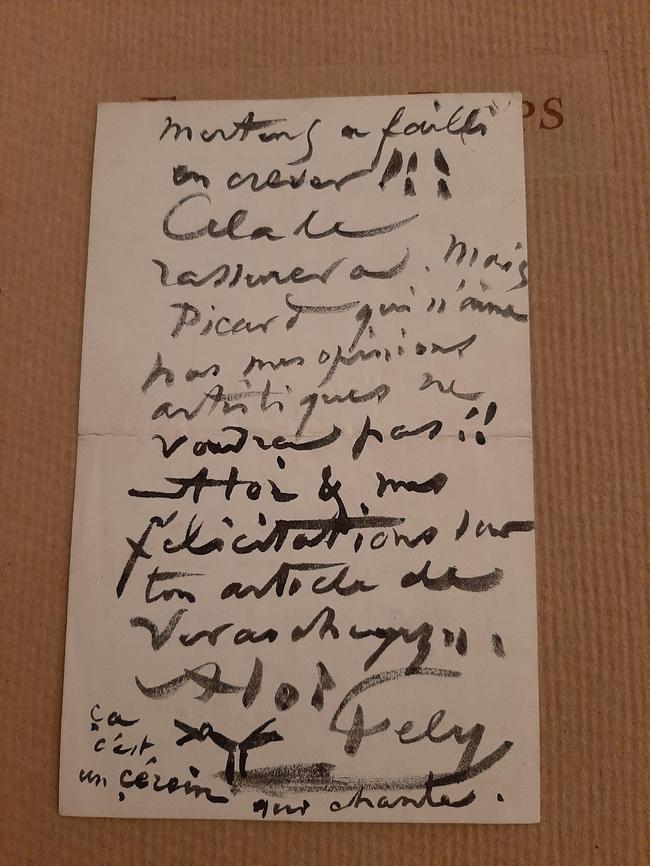 PS
a failli
en crever !!!
Cela te
rassurera. Mais
Picard qui n'aime
pas mes opinions
artistiques ne
voudra pas !!
A toi & mes
félicitations sur
ton article de
A toi Fély
ça
c'est
un serin qui chante.